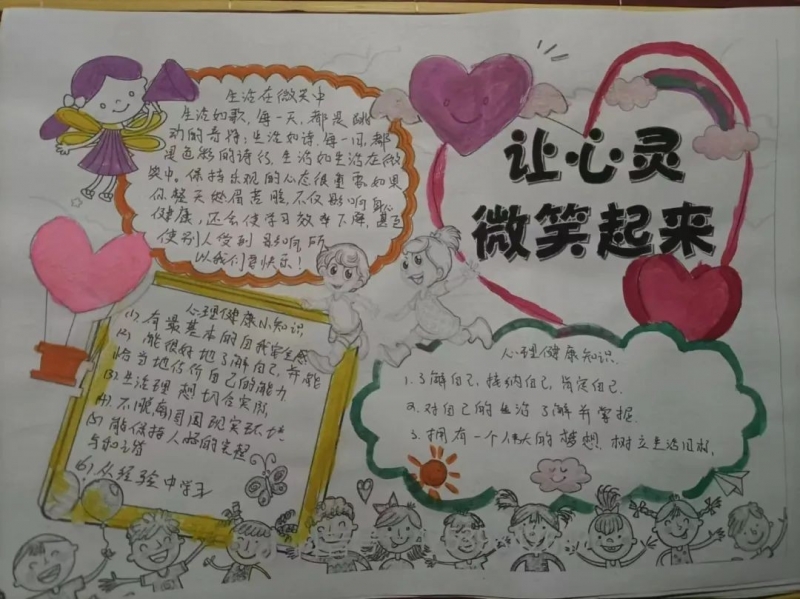 生活在微笑中
生活如歌,每一天,都是跳
动的音符;生活如诗,每一日,都
是色彩的诗行,生活如生活在微
笑中。保持乐观的心态很重要。如果
你整天愁眉苦脸,不仅影响身心
健康,还会使学习效率下降,甚至
使别人受到影响所
以我们要快乐!
让心灵
微笑起来
心理健康小知识
(1)有最基本的自我安全感
(2)能很好地了解自己,并能
恰当地估价自己的能力
(3)生活理想切合实际
(4)不脱离周围现实环境
(5)能保持人格的完整
与和谐
(6)从经验中学习
心理健康知识
1.了解自己,接纳自己,肯定自己.
2.对自己的生活了解并掌握.
3.拥有一个伟大的梦想.树立生活目标.